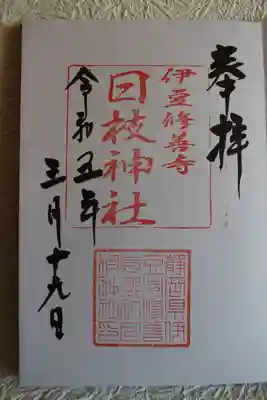 奉拝
伊豆修善寺
日枝神社
令和五年
三月十九日
静岡県伊